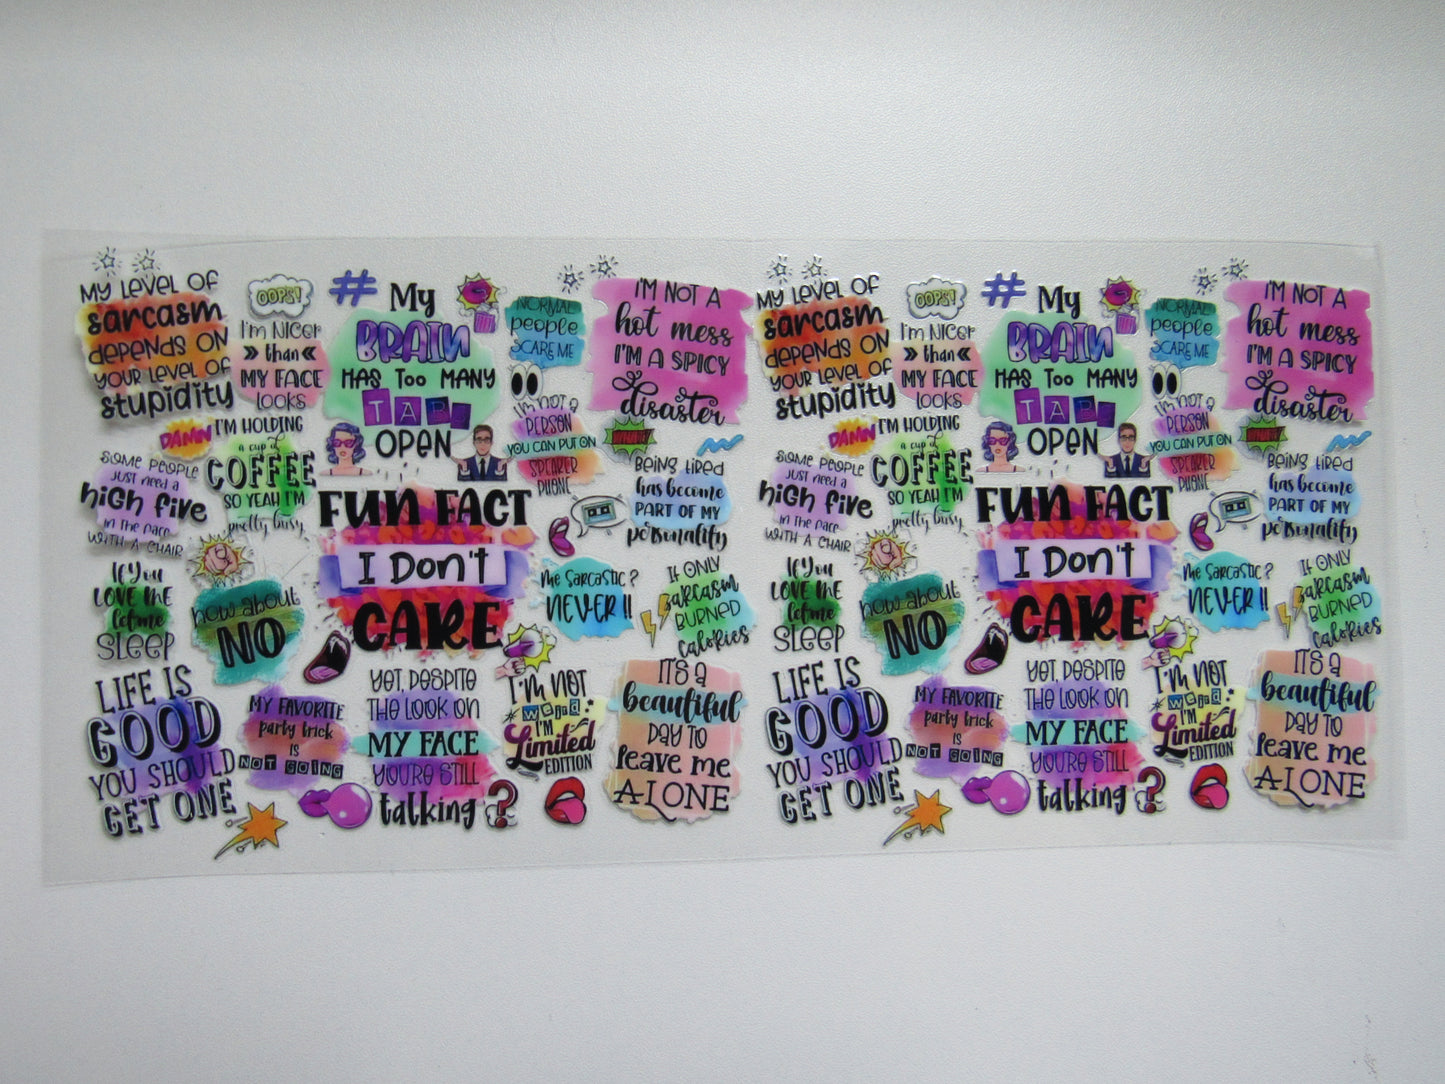 MY LEVEL OF
sarcasm
DEPENDS ON
YOUR LEVEL OF
stupidity
OOPS!
I'm NICER
» than «
MY FACE
LOOKS
# My
BRAIN
HAS Too MANY
TABS
OPEN
NORMAL
people
SCARE ME
I'M NOT A
hot mess
I'M A SPICY
disaster
DAMN
I'M HOLDING
a cup of
COFFEE
SO YEAH I'M
pretty busy
I'M NOT A
PERSON
YOU CAN PUT ON
SPEAKER
PHONE
SOME PEOPLE
JUST NEED A
HIGH FIVE
IN THE FACE
WITH A CHAIR
FUN FACT
I DON'T
CARE
BEING TIRED
has become
PART OF MY
personality
If You
LOVE ME
let me
SLEEP
how about
NO
Me Sarcastic?
NEVER!!
If ONLY
SARCASM
BURNED
Calories
LIFE IS
GOOD
YOU SHOULD
GET ONE
MY FAVORITE
party trick
IS
NOT GOING
YET, DESPITE
THE LOOK ON
MY FACE
YOU'RE STILL
talking
?
I'M NOT
weird
I'M
Limited
EDITION
IT'S a
beautiful
DAY TO
leave me
ALONE
MY LEVEL OF
sarcasm
DEPENDS ON
YOUR LEVEL OF
stupidity
OOPS!
I'm NICER
» than «
MY FACE
LOOKS
# My
BRAIN
HAS Too MANY
TABS
OPEN
NORMAL
people
SCARE ME
I'M NOT A
hot mess
I'M A SPICY
disaster
DAMN
I'M HOLDING
a cup of
COFFEE
SO YEAH I'M
pretty busy
I'M NOT A
PERSON
YOU CAN PUT ON
SPEAKER
PHONE
SOME PEOPLE
JUST NEED A
HIGH FIVE
IN THE FACE
WITH A CHAIR
FUN FACT
I DON'T
CARE
BEING TIRED
has become
PART OF MY
personality
If You
LOVE ME
let me
SLEEP
how about
NO
Me Sarcastic?
NEVER!!
If ONLY
SARCASM
BURNED
Calories
LIFE IS
GOOD
YOU SHOULD
GET ONE
MY FAVORITE
party trick
IS
NOT GOING
YET, DESPITE
THE LOOK ON
MY FACE
YOU'RE STILL
talking
?
I'M NOT
weird
I'M
Limited
EDITION
IT'S a
beautiful
DAY TO
leave me
ALONE